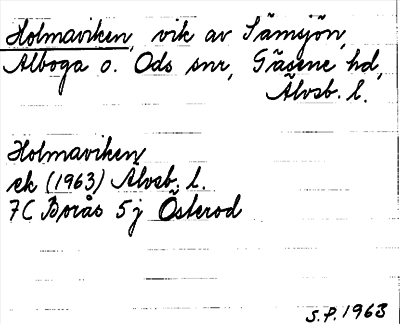 Holmaviken, vik av Sämsjön,
Alboga o. Ods snr, Gäsene hd,
Älvsb. l.
Holmaviken
ek (1963) Älvsb. l.
7C Borås 5j Österod
S.P. 1963